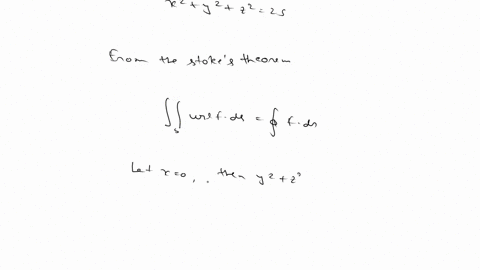 x² + y² + z² = 25
From the stoke's theorem
∬ₛ curl f. ds = ∮ f. ds
Let x=0, . then y² + z²